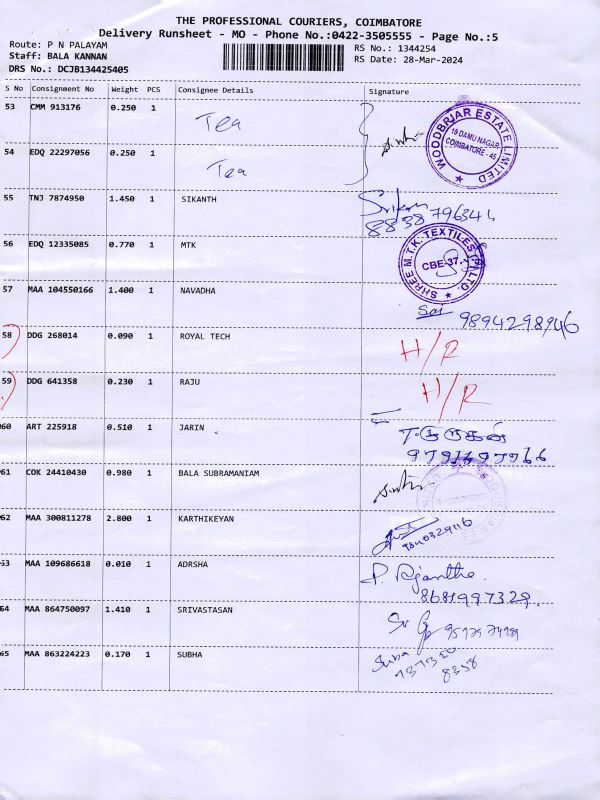 THE PROFESSIONAL COURIERS, COIMBATORE
Delivery Runsheet - MO - Phone No.:0422-3505555 - Page No.:5
Route: P N PALAYAM RS No.: 1344254
Staff: BALA KANNAN RS Date: 28-Mar-2024
DRS No.: DCJB134425405
S No Consignment No Weight PCS Consignee Details Signature
53 CMM 913176 0.250 1 Tea
WOODBRIAR ESTATE LIMITED
15 DAMU NAGAR,
COIMBATORE - 45
54 EDQ 22297056 0.250 1 Tea
55 TNJ 7874950 1.450 1 SIKANTH
56 EDQ 12335085 0.770 1 MTK
SHREE M.T.K. TEXTILES (P) LTD.
CBE-37.
57 MAA 104550166 1.400 1 NAVADHA
9894298946
58 DDG 268014 0.090 1 ROYAL TECH H/R
59 DDG 641358 0.230 1 RAJU H/R
60 ART 225918 0.510 1 JARIN
61 COK 24410430 0.980 1 BALA SUBRAMANIAM
62 MAA 300811278 2.800 1 KARTHIKEYAN
63 MAA 109686618 0.010 1 ADRSHA
8681997329.
64 MAA 864750097 1.410 1 SRIVASTASAN
65 MAA 863224223 0.170 1 SUBHA